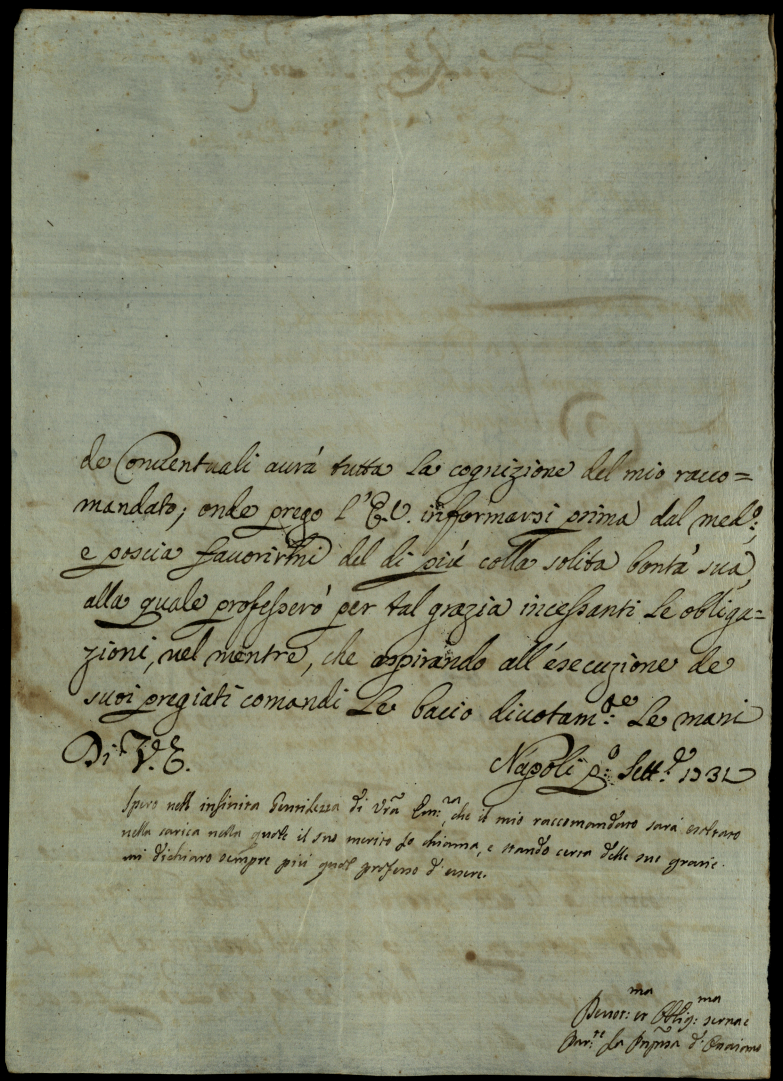 de Conventuali aurà tutta la cognizione del mio racco=
mandato; onde prego l'E.V. informarsi prima dal med.o;
e poscia favorirmi del di più colla solita bontà sua,
alla quale professerò per tal grazia incessanti le obliga=
zioni, nel mentre, che aspirando all'esecuzione de
suoi pregiati comandi le bacio divotam.te le mani
Di V.E. Napoli p.o Sett.e 1731
Spero nell infinita Gentilezza di Vrã Em:za, che il mio raccomandato sarà esaltato
nella carica nella quale il suo merito lo chiama, e stando certa delle sue grazie
mi dichiaro sempre più qual professo d'essere.
Devot:ma et Oblig:ma serva e
Par:te La Prip̃sa d'